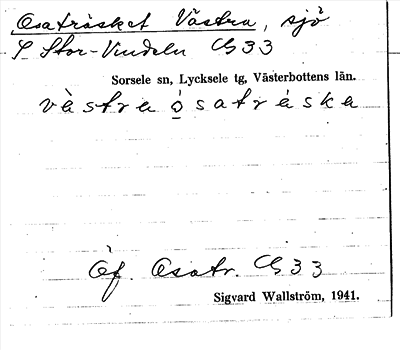 Osaträsket Västra, sjö
S Stor-Vindeln Cg 33
Sorsele sn, Lycksele tg, Västerbottens län.
vàstra ó̱satrǻska
Öf. Osatr. Cg 33
Sigvard Wallström, 1941.